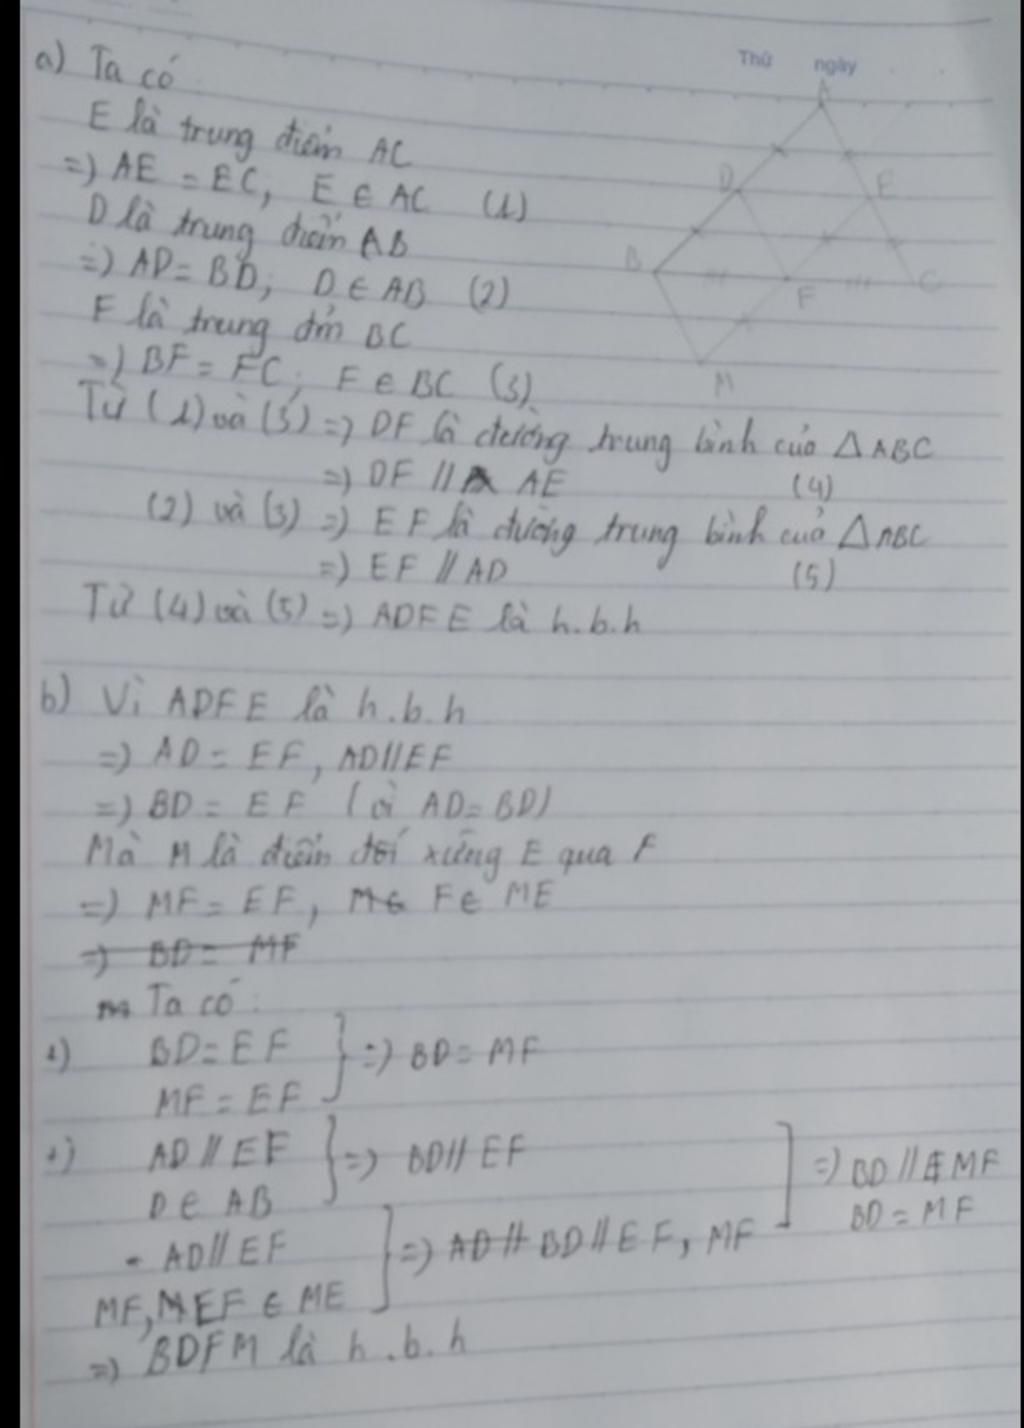 Thứ ngày
a) Ta có
E là trung điểm AC
=) AE = EC, E ∈ AC (1)
D là trung điểm AB
=) AD = BD, D ∈ AB (2)
F là trung đm BC
=) BF = FC, F ∈ BC (3)
Từ (1) và (3) =) DF là đường trung bình của △ABC
=) DF // AE (4)
(2) và (3) =) EF là đường trung bình của △ABC
=) EF // AD (5)
Từ (4) và (5) =) ADFE là h.b.h
b) Vì ADFE là h.b.h
=) AD = EF, AD//EF
=) BD = EF (vì AD = BD)
Mà M là điểm đối xứng E qua F
=) MF = EF, F ∈ ME
=) BD = MF
Ta có:
1) BD = EF } =) BD = MF
MF = EF
2) AD // EF } =) BD // EF
D ∈ AB
- AD // EF } =) AD // BD // EF, MF
MF, EF ∈ ME
] =) BD // MF
BD = MF
=) BDFM là h.b.h
A
D
E
B
F
C
M